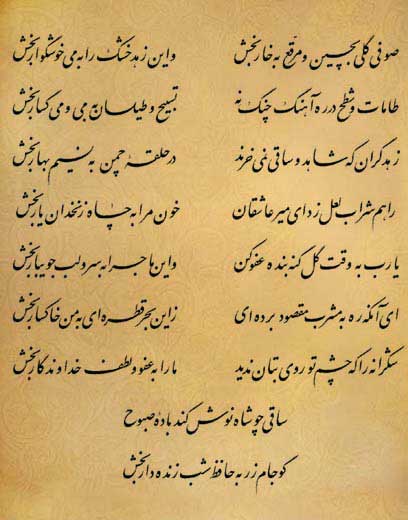 صوفی گلی بچین و مرقع به خار بخش واین زهد خشک را به می خوشگوار بخش
طامات و شطح در ره آهنگ چنگ نه تسبیح و طیلسان به می و می گسار بخش
زهد گران که شاهد و ساقی نمی خرند در حلقه چمن به نسیم بهار بخش
راهم شراب لعل زد ای میر عاشقان خون مرا به چاه زنخدان یار بخش
یا رب به وقت گل گنه بنده عفو کن واین ماجرا به سرو لب جویبار بخش
ای آنکه ره به مشرب مقصود برده ای زاین بحر قطره ای به من خاکسار بخش
شکرانه را که چشم تو روی بتان ندید ما را به عفو و لطف خداوندگار بخش
ساقی چو شاه نوش کند باده صبوح
گو جام زر به حافظ شب زنده دار بخش